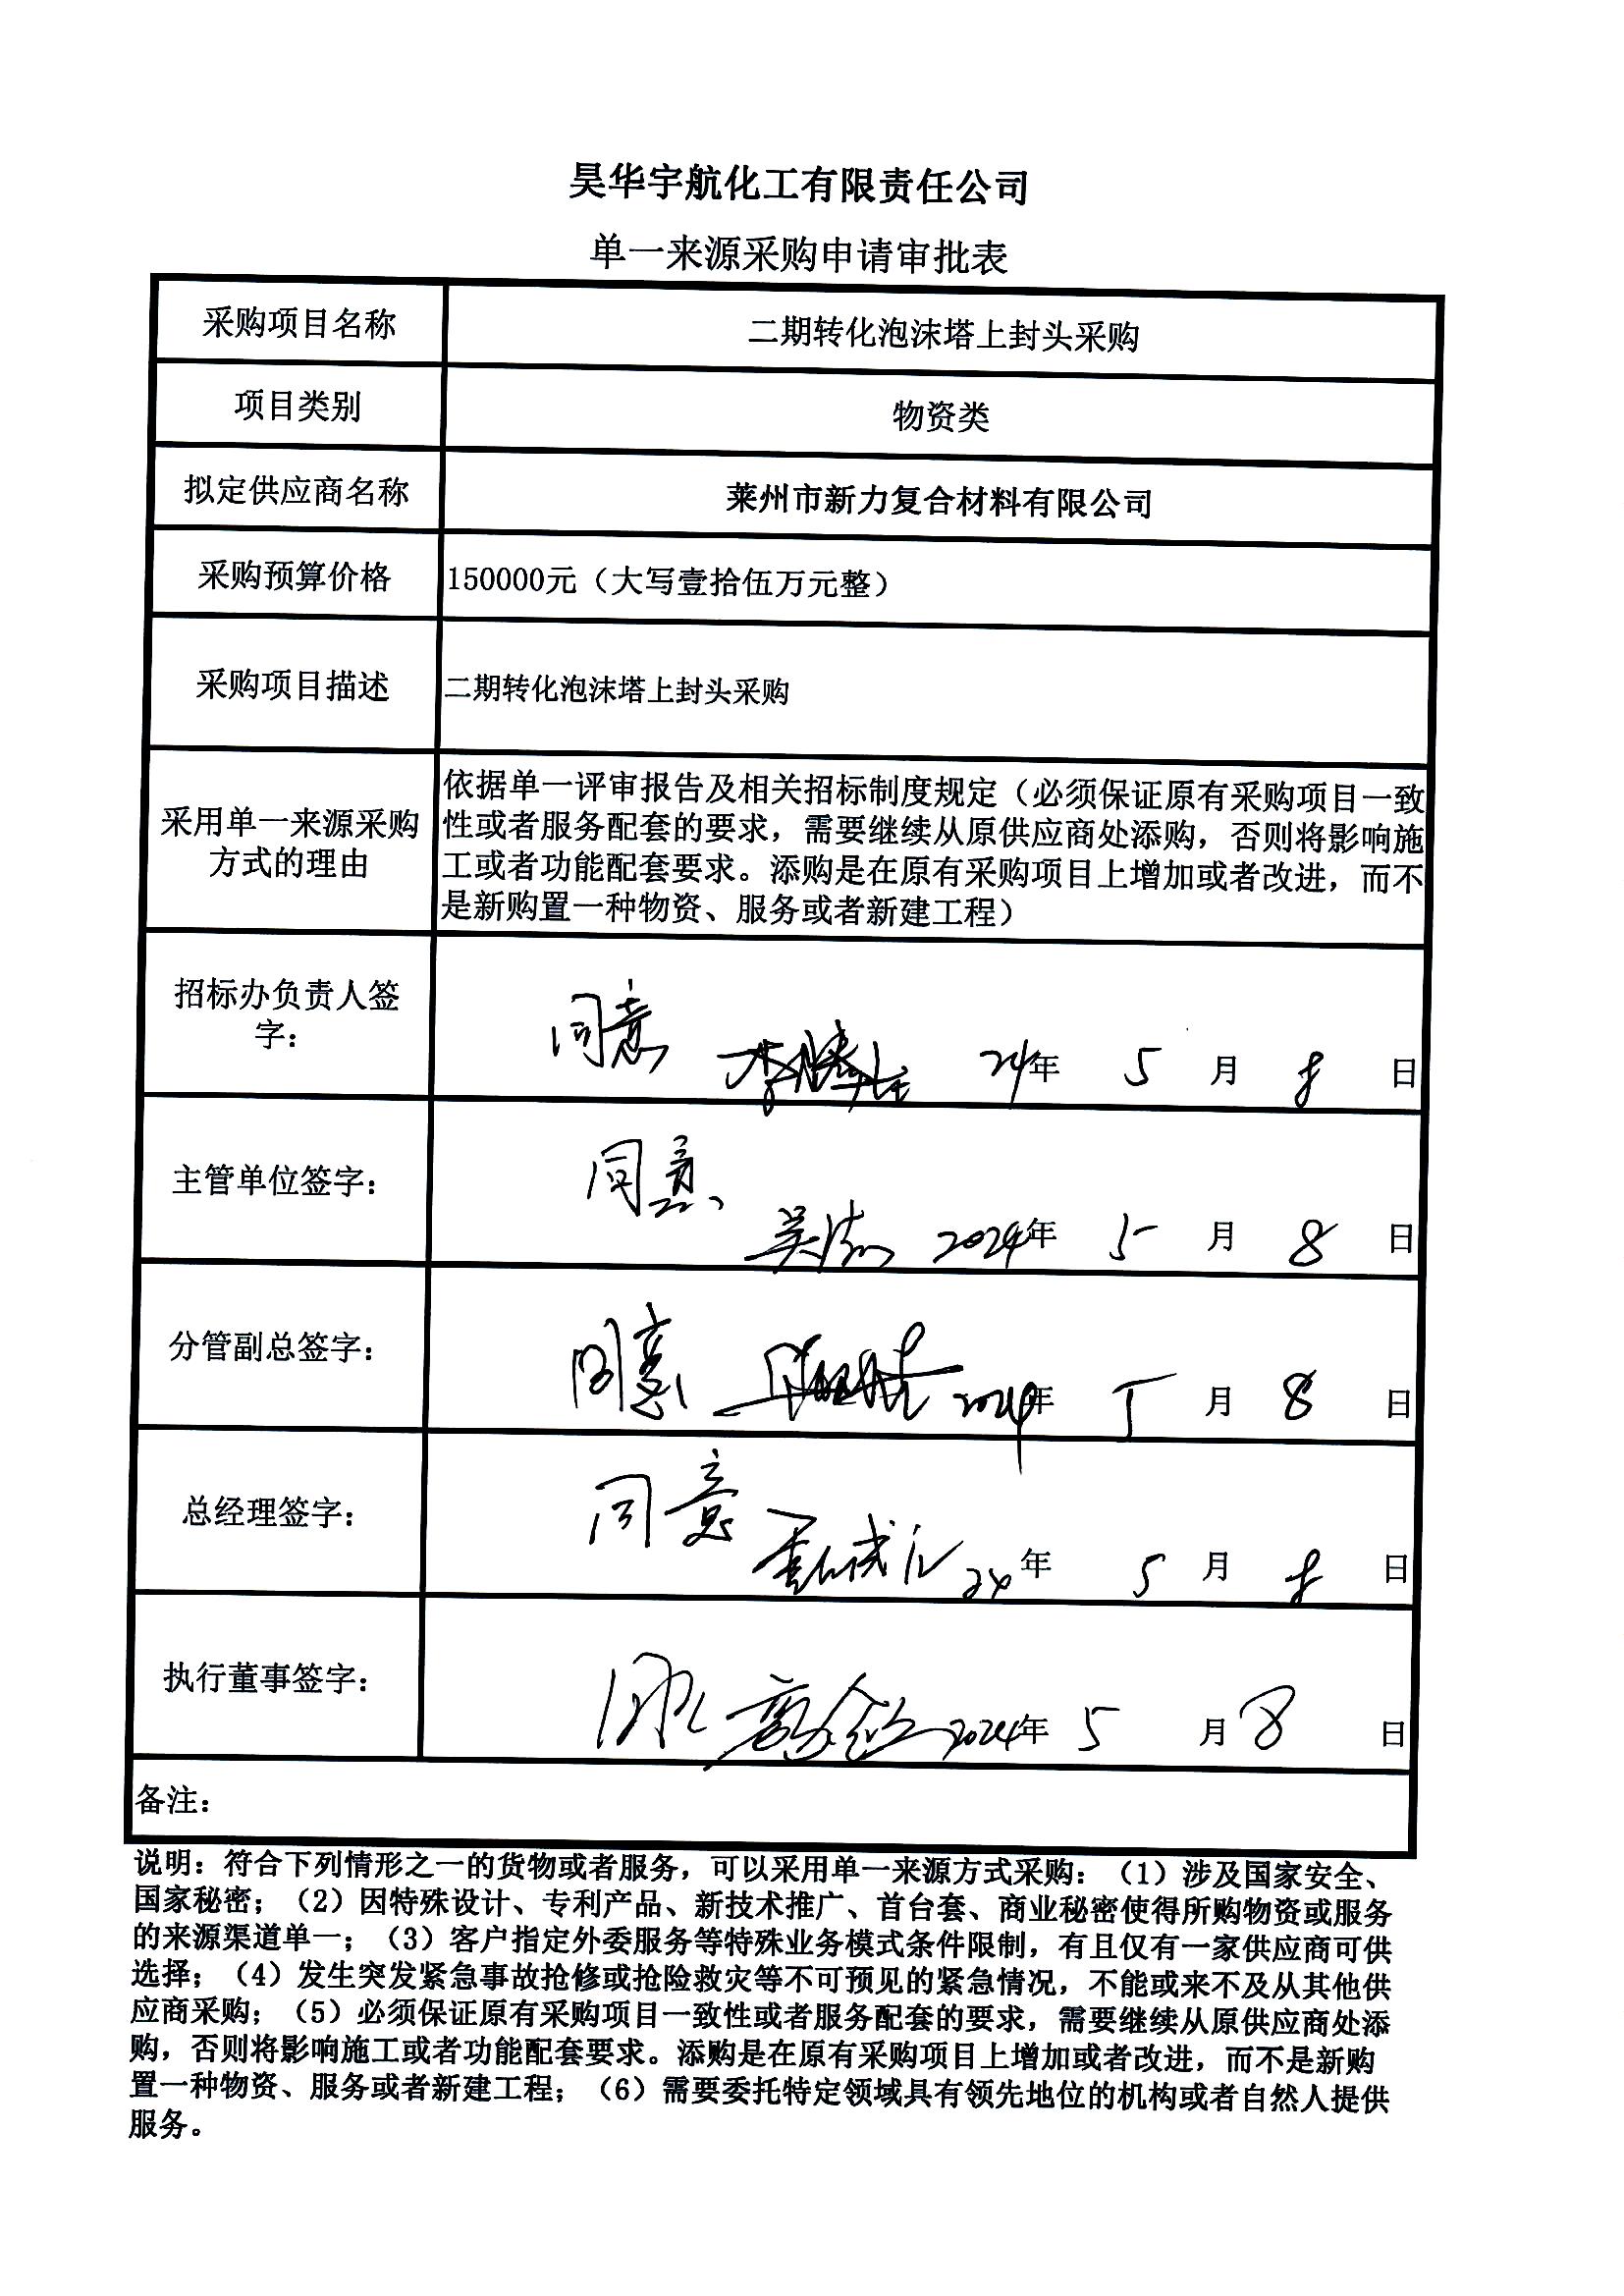 昊华宇航化工有限责任公司
单一来源采购申请审批表
采购项目名称 二期转化泡沫塔上封头采购
项目类别 物资类
拟定供应商名称 莱州市新力复合材料有限公司
采购预算价格 150000元（大写壹拾伍万元整）
采购项目描述 二期转化泡沫塔上封头采购
采用单一来源采购
方式的理由
依据单一评审报告及相关招标制度规定（必须保证原有采购项目一致
性或者服务配套的要求，需要继续从原供应商处添购，否则将影响施
工或者功能配套要求。添购是在原有采购项目上增加或者改进，而不
是新购置一种物资、服务或者新建工程）
招标办负责人签
字：
同意 24年 5 月 8 日
主管单位签字：
同意 2024年 5 月 8 日
分管副总签字：
同意 2024年 5 月 8 日
总经理签字：
同意 24年 5 月 8 日
执行董事签字：
2024年 5 月 8 日
备注：
说明：符合下列情形之一的货物或者服务，可以采用单一来源方式采购：（1）涉及国家安全、
国家秘密；（2）因特殊设计、专利产品、新技术推广、首台套、商业秘密使得所购物资或服务
的来源渠道单一；（3）客户指定外委服务等特殊业务模式条件限制，有且仅有一家供应商可供
选择；（4）发生突发紧急事故抢修或抢险救灾等不可预见的紧急情况，不能或来不及从其他供
应商采购；（5）必须保证原有采购项目一致性或者服务配套的要求，需要继续从原供应商处添
购，否则将影响施工或者功能配套要求。添购是在原有采购项目上增加或者改进，而不是新购
置一种物资、服务或者新建工程；（6）需要委托特定领域具有领先地位的机构或者自然人提供
服务。